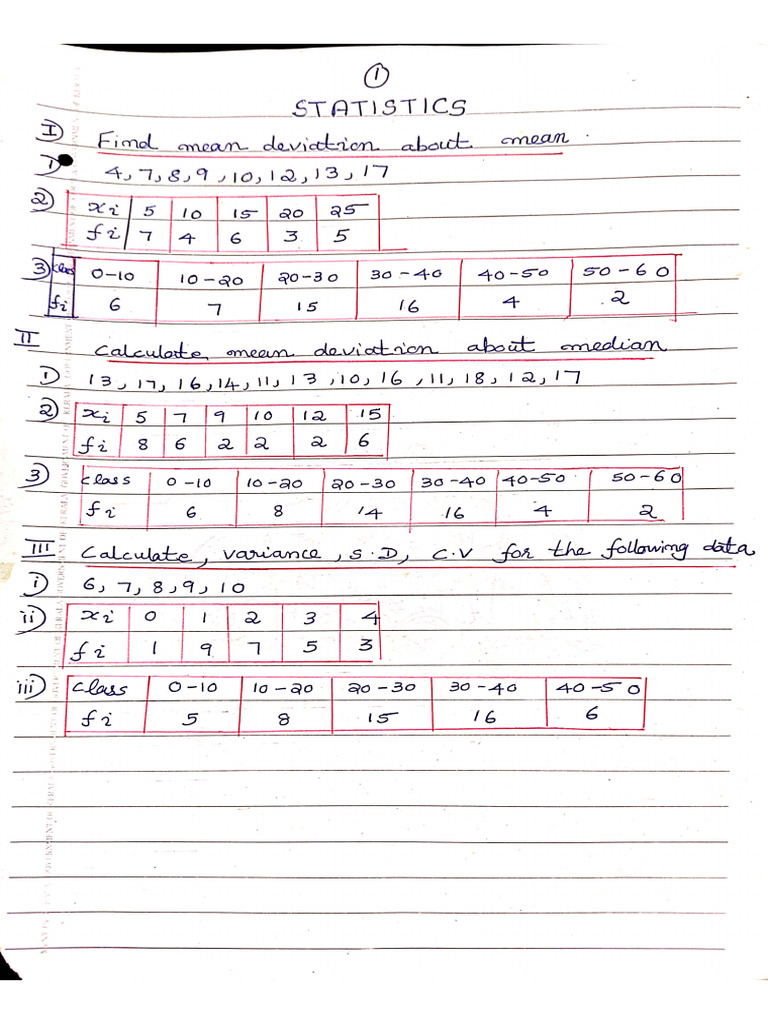 1
STATISTICS
I) Find mean deviation about mean.
1) 4, 7, 8, 9, 10, 12, 13, 17
2) xi 5 10 15 20 25
fi 7 4 6 3 5
3) class 0-10 10-20 20-30 30-40 40-50 50-60
fi 6 7 15 16 4 2
II Calculate mean deviation about median
1) 13, 17, 16, 14, 11, 13, 10, 16, 11, 18, 12, 17
2) xi 5 7 9 10 12 15
fi 8 6 2 2 2 6
3) class 0-10 10-20 20-30 30-40 40-50 50-60
fi 6 8 14 16 4 2
III Calculate, variance, S.D, C.V for the following data
i) 6, 7, 8, 9, 10
ii) xi 0 1 2 3 4
fi 1 9 7 5 3
iii) class 0-10 10-20 20-30 30-40 40-50
fi 5 8 15 16 6